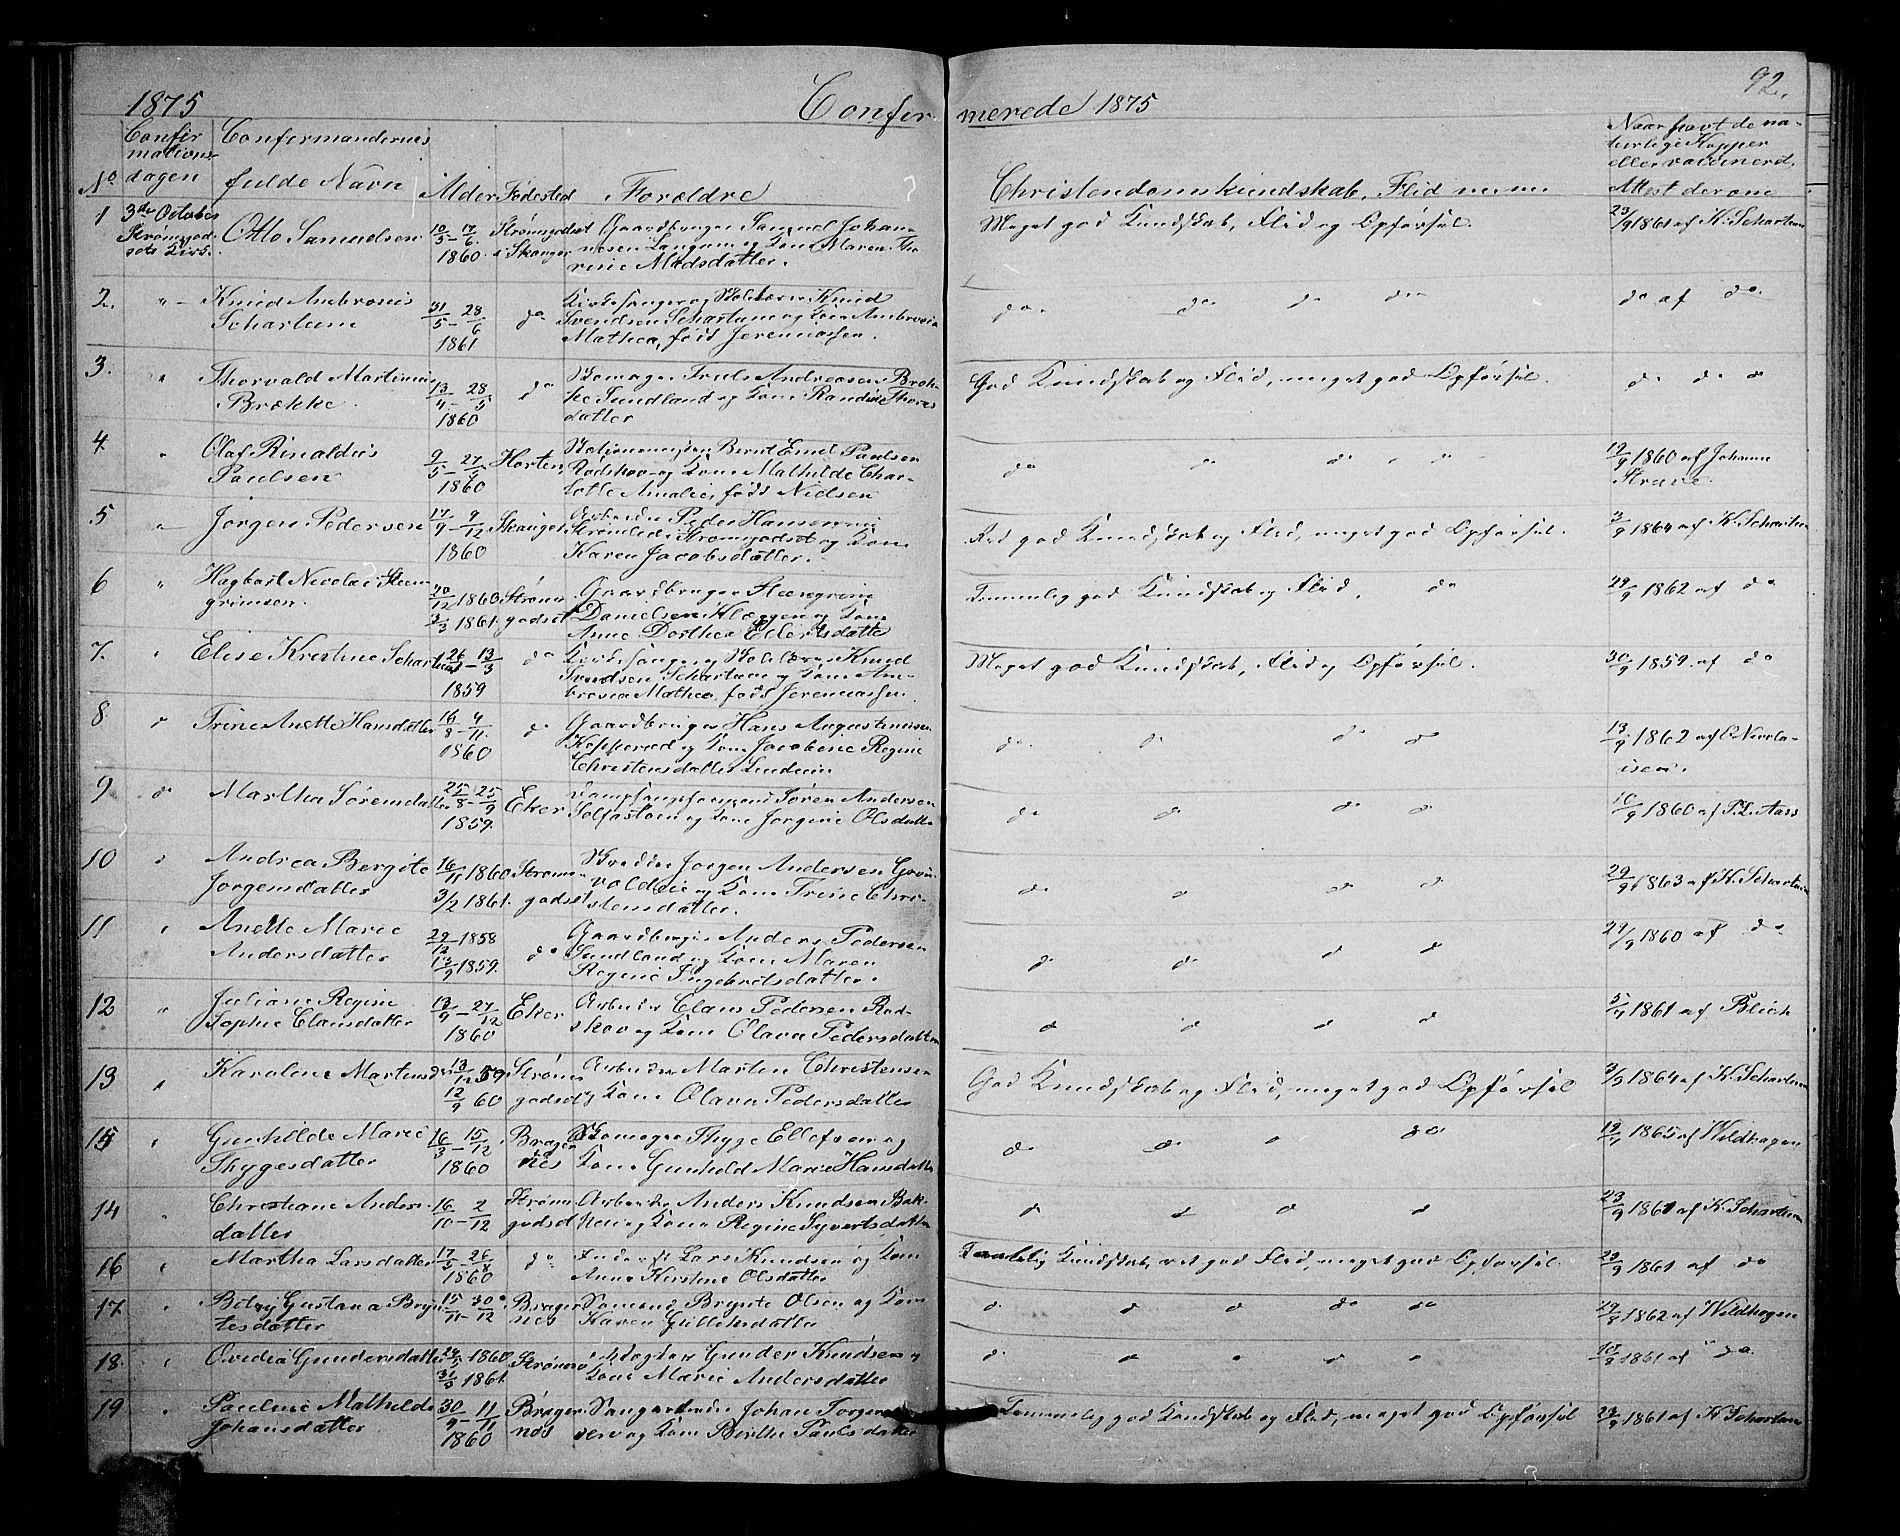 92.
1875 Confir merede 1875
No
Confir
mations-
dagen
Confirmandernes
fulde Navn
Alder Fødested Forældre
Christendomskundskab, Flid m.m.
Naar havt de na-
turlige Kopper
eller vaccineret,
Attest derom
1 3die October Strømgod-
sets Kirke.
Otto Samuelsen
10/5 – 17/6
1860.
Strømgodset
i Skauger
Gaardbruger Samuel Johan-
nesen Langum og Kone Maren Tho-
rine Madsdatter.
Meget god Kundskab, Flid og Opførsel.
23/9 1861 af K. Schartum
2. "
Knud Ambrosius
Schartum
31/5 – 28/6
1861
do
Kirkesanger og Skolelærer Knud
Svendsen Schartum og Kone Ambrosia
Mathea, født Jeremiassen.
do do do do
do af do
3. "
Thorvald Martinius
Brække
13/4 – 28/5
1860
do
Skomager Truls Andreasen Bræk-
ke Sundland og Kone Randine Thores
datter
God Kundskab og Flid, meget god Opførsel.
do do do
4. "
Olaf Rinaldus
Paulsen
9/5 – 27/5
1860
Horten
Stationsmester Bernt Emil Paulsen
Rødskov og Kone Mathilde Char-
lotte Amalie, født Nielsen
do do do do
19/9 1860 af Johanne
Strøm
5 "
Jørgen Pedersen
17/9 – 9/12
1860
Skauger
Arbeider Peder Hansen
Strømgodset og Kone
Karen Jacobsdatter.
Ret god Kundskab og Flid, meget god Opførsel.
3/9 1864 af K. Schartum
6 "
Hagbart Nicolai Steen-
grimsen.
30/12 1860
3/3 1861
Strøms-
godset
Gaardbruger Steengrim
Danielsen Kleggen og Kone
Anne Dorthea Ellertsdatter
Temmelig god Kundskab og Flid, do
29/9 1862 af do
7. "
Elise Kristine Schartum
26/1 – 13/3
1859
do
Kirkesanger og Skolelærer Knud
Svendsen Schartum og Kone Am-
brosia Mathea, født Jeremiassen.
Meget god Kundskab, Flid og Opførsel.
30/9 1859 af do
8 "
Trine Anette Hansdatter
16/8 – 4/11
1860
do
Gaardbruger Hans Augustinusen
Kopperud og Kone Jacobine Regine
Christensdatter Lindum
do do do do
13/9 1862 af C. Nicola-
isen.
9 do
Martha Sørensdatter
25/8 – 25/9
1859.
Eker
Søren Andersen
Solfastøen og Kone Jørgine Olsdatter
do do do do
10/9 1860 af P. L. Aass
10 "
Andrea Bergite
Jørgensdatter
16/11 1860
3/2 1861.
Strøms-
godset
Skrædder Jørgen Andersen Grøn-
vold og Kone Trine Chri-
stensdatter.
do do do do
29/9 1863 af K. Schartum
11 "
Anette Marie
Andersdatter
29/12 1858
13/9 1859.
do
Gaardbruger Anders Pedersen
Sundland og Kone Maren
Regine Ingebretsdatter.
do do do do
27/9 1860 af do
12 "
Juliane Regine
Sophie Clausdatter
13/9 – 27/12
1860
Eker
Arbeider Claus Pedersen Rød-
skov og Kone Olava Pedersdatter
do do do do
5/7 1861 af Blich
13 "
Karoline Martinsdr
13/12 59
12/9 60
Strøms
godset
Arbeider Martin Christensen
og Kone Olava Pedersdatter
God Kundskab og Flid, meget god Opførsel
3/9 1864 af K. Schartum
15 "
Gunhilde Marie
Thygesdatter
16/3 – 15/12
1860
Brager
nes
Skomager Thyge Ellefsen og
Kone Gunhild Marie Hansdatter
do do do do
19/7 1865 af Wildhagen
14 "
Christiane Anders-
datter
16/10 – 2/12
Strøms
godset
Arbeider Anders Knudsen Bak-
ken og Kone Regine Syvertsdatter
do do do do
23/9 1861 af K. Schartum
16 "
Martha Larsdatter
17/5 – 26/8
1860
do
Lars Knudsen og Kone
Anne Kirstine Olsdatter
Kundskab, ret god Flid, meget god Opførsel.
23/9 1861 af do
17. "
Betzy Gustava Bryn-
tesdatter
15/11 – 30/12
Brager
nes
Sømand Brynte Olsen og Kone
Karen Gulliksdatter
do do do do do
19/8 1862 af Wildhagen
18. "
Ovedia Gundersdatter
1860
31/3 1861.
Strømsø
Gunder Knudsen og
Kone Marie Andersdatter
do do do do do
10/9 1861 af do
19 "
Pauline Mathilde
Johansdatter
30/9 – 11/11
1860
Brager
nes
Johan Torger-
sen og Kone Berthe Paulsdatter
Temmelig god Kundskab og Flid, meget god Opførsel
23/9 1861 af K. Schartum